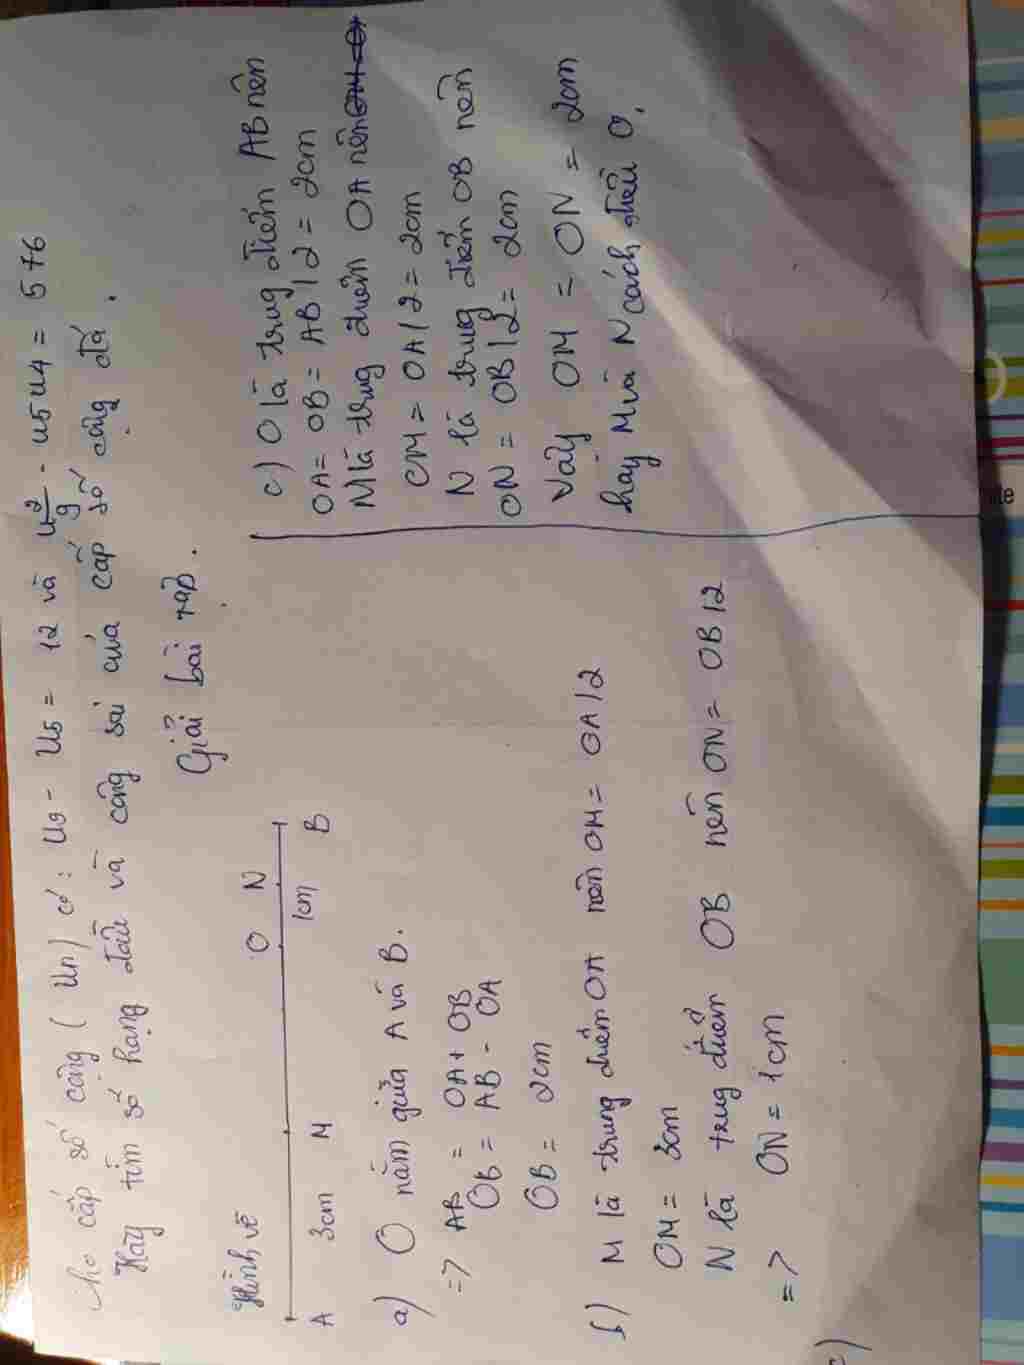 Cho cấp số cộng (Un) có: U9 - U5 = 12 và u²9 - u5u4 = 576
Hãy tìm số hạng đầu và công sai của cấp số cộng đó.
Giải bài tập.
Hình vẽ
O N
A 3cm M 1cm B
a) O nằm giữa A và B.
=> AB = OA + OB
OB = AB - OA
OB = 2cm
b) M là trung điểm OA nên OM = OA/2
OM = 3cm
N là trung điểm OB nên ON = OB/2
=> ON = 1cm
c)
c) O là trung điểm AB nên
OA = OB = AB/2 = 2cm
M là trung điểm OA nên
OM = OA/2 = 2cm
N là trung điểm OB nên
ON = OB/2 = 2cm
Vậy OM = ON = 2cm
hay M và N cách đều O.